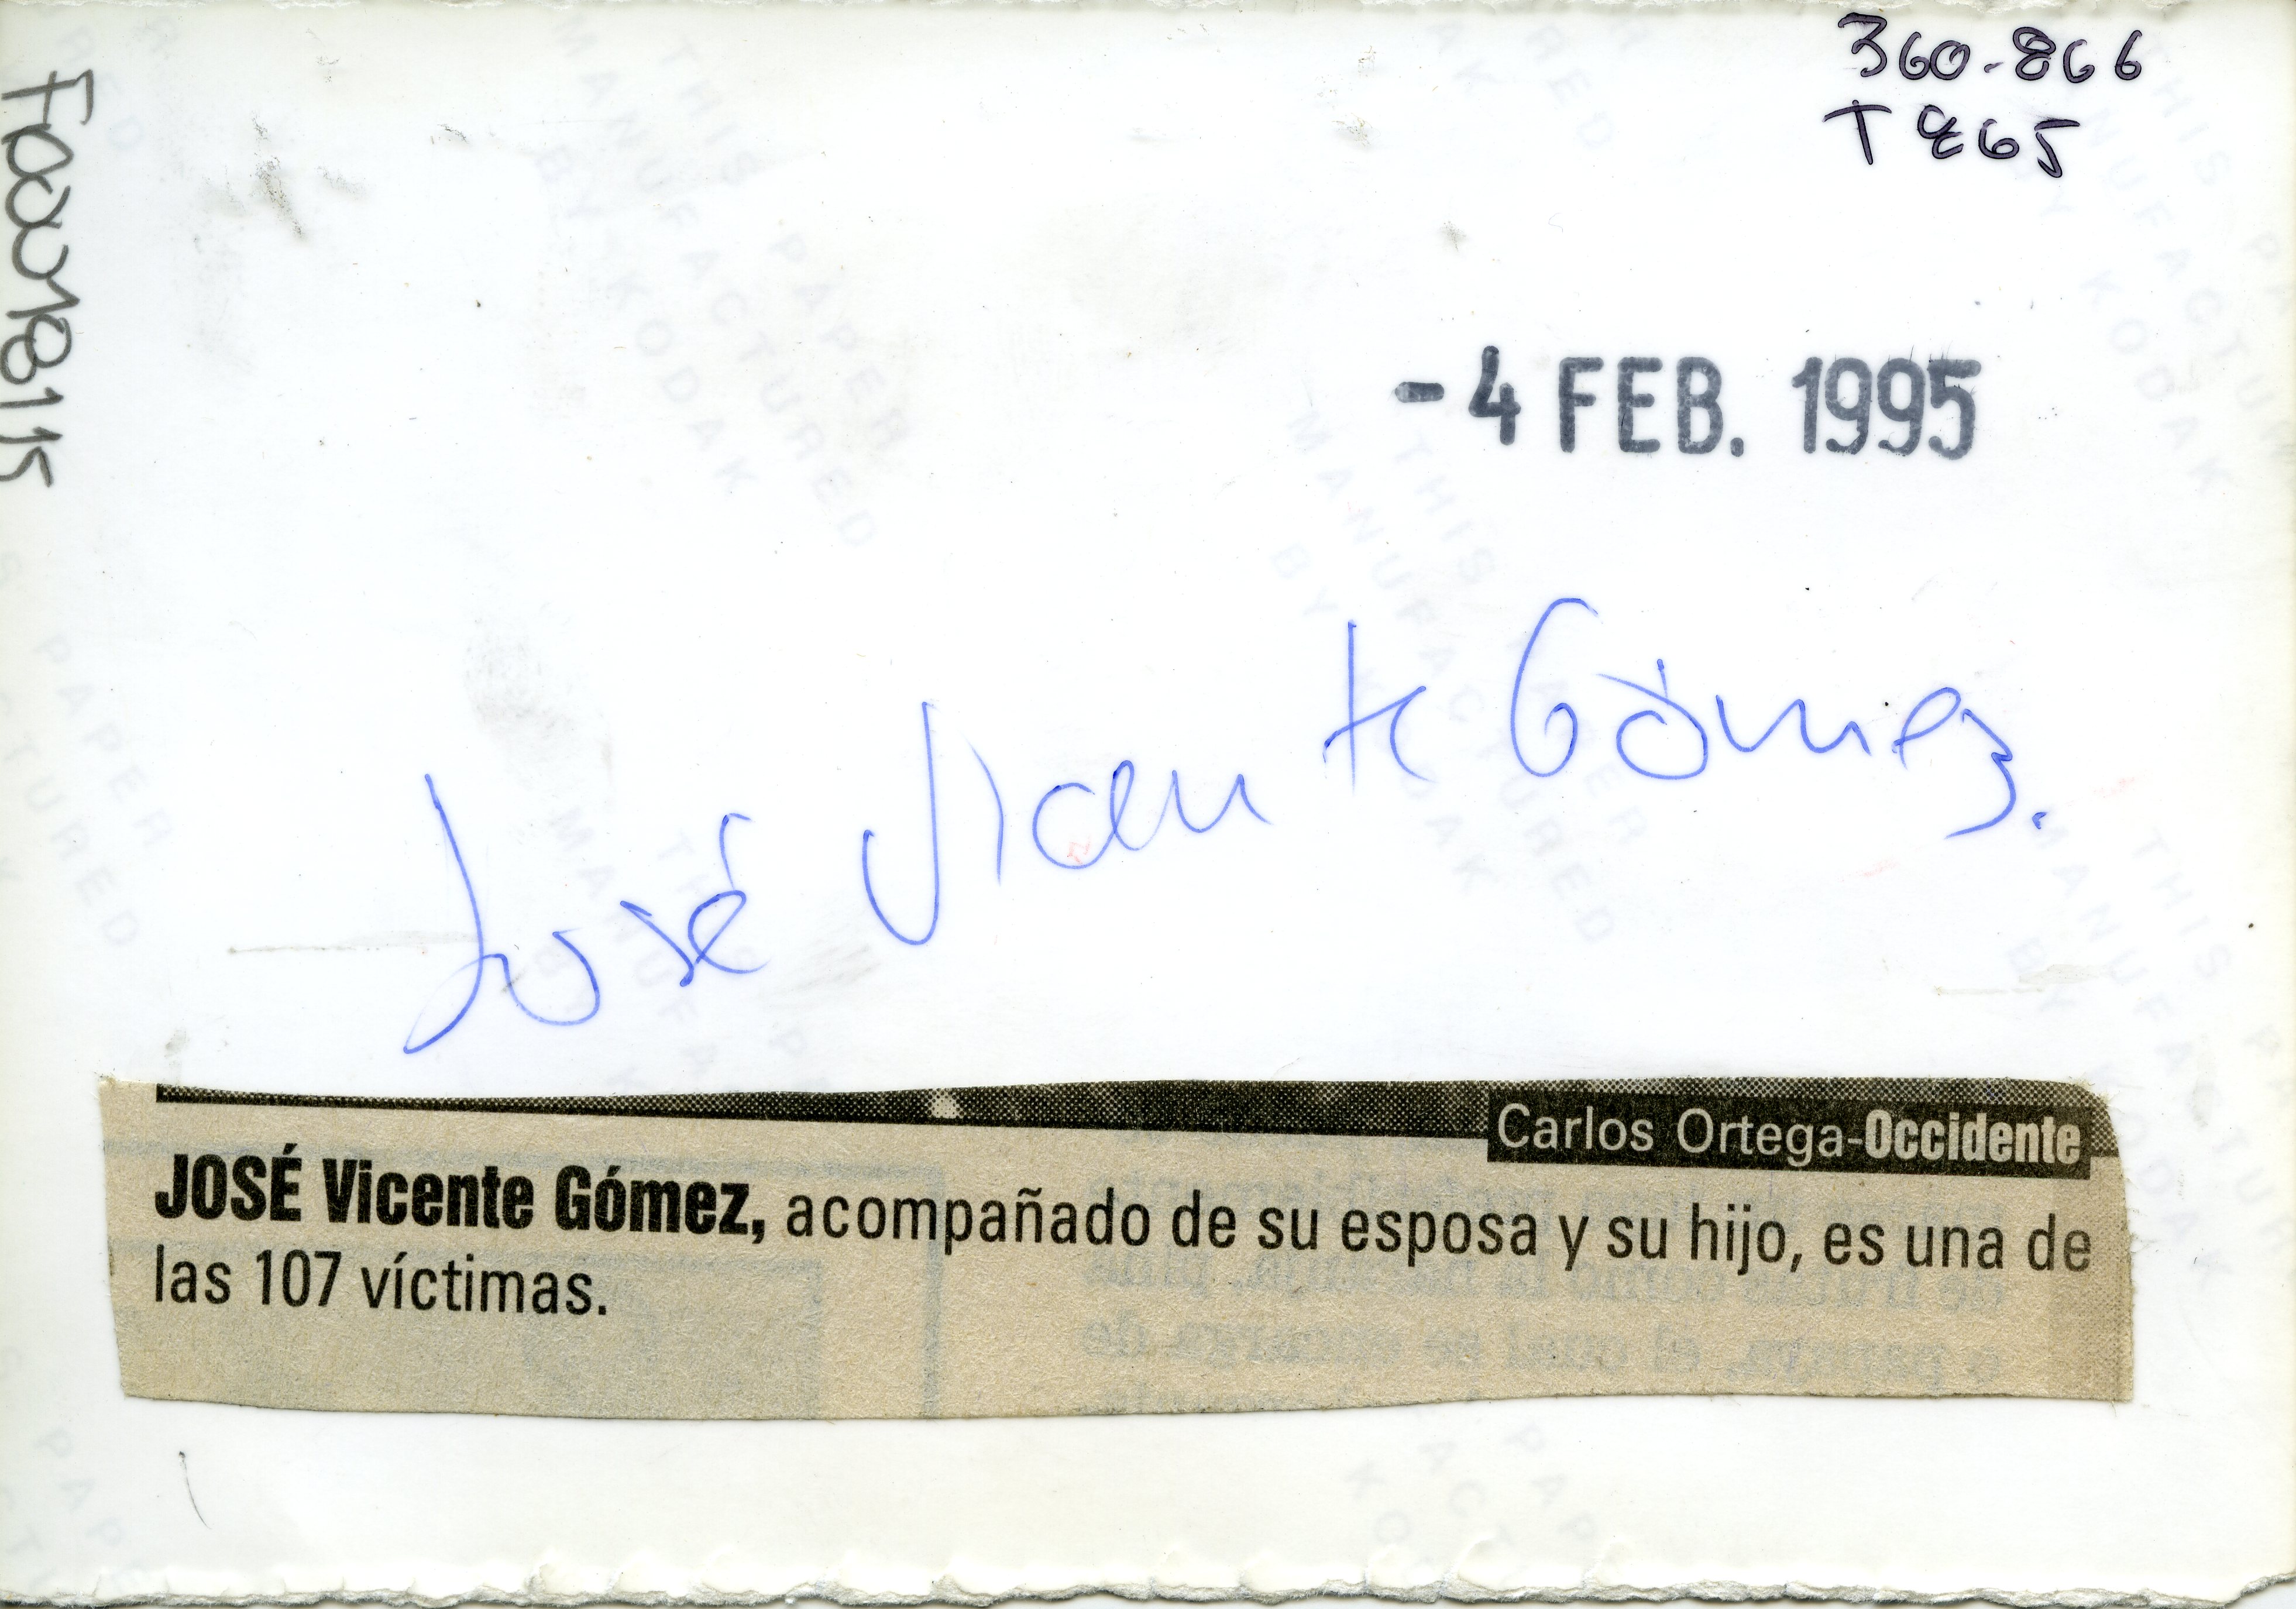 360-866
T865
F00018115
-4 FEB. 1995
José Vicente Gómez.
Carlos Ortega-Occidente
JOSÉ Vicente Gómez, acompañado de su esposa y su hijo, es una de
las 107 víctimas.
THIS PAPER
MANUFACTURED
BY KODAK